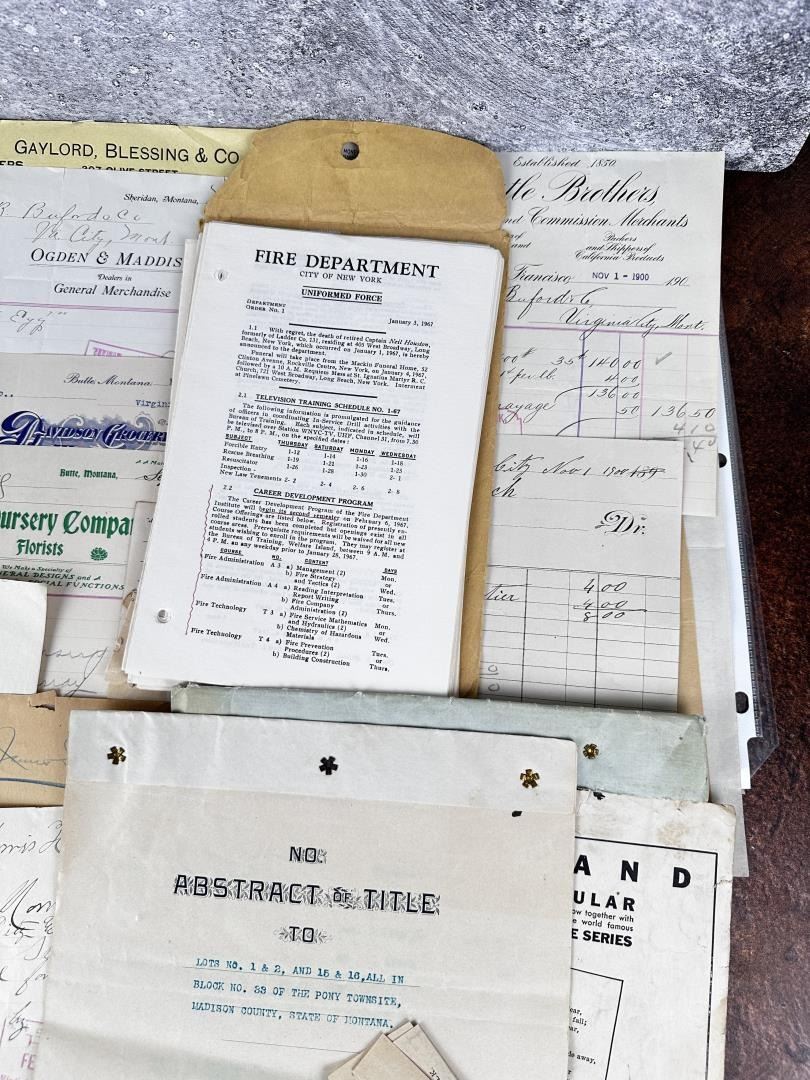 GAYLORD, BLESSING & CO
307 OLIVE STREET
Sheridan, Montana,
Buford & Co
Va City, Mont
OGDEN & MADDIS
Dealers in
General Merchandise
Butte, Montana
Virgin
DAVIDSON GROCERY
Butte, Montana,
ursery Compa
Florists
We Make a Specialty of
FUNERAL DESIGNS and
FUNCTIONS
FIRE DEPARTMENT
CITY OF NEW YORK
UNIFORMED FORCE
DEPARTMENT
ORDER No. 1
January 3, 1967
1.1 With regret, the death of retired Captain Neil Houston,
formerly of Ladder Co. 131, residing at 405 West Broadway, Long
Beach, New York, which occurred on January 1, 1967, is hereby
announced to the department.
Funeral will take place from the Mackin Funeral Home, 52
Clinton Avenue, Rockville Centre, New York, on January 4, 1967,
followed by a 10 A.M. Requiem Mass at St. Ignatius Martyr R. C.
Church, 721 West Broadway, Long Beach, New York. Interment
at Pinelawn Cemetery.
2.1 TELEVISION TRAINING SCHEDULE NO. 1-67
The following information is promulgated for the guidance
of officers in coordinating In-Service Drill activities with the
Bureau of Training. Each subject, indicated in schedule, will
be televised over Station WNYC-TV, UHF, Channel 31, from 7.30
P. M., to 8 P. M., on the specified dates:
SUBJECT THURSDAY SATURDAY MONDAY WEDNESDAY
Forcible Entry 1-12 1-14 1-16 1-18
Rescue Breathing 1-19 1-21 1-23 1-25
Resuscitator 1-26 1-28 1-30 2- 1
Inspection -
New Law Tenements 2- 2 2- 4 2- 6 2- 8
2.2 CAREER DEVELOPMENT PROGRAM
The Career Development Program of the Fire Department
Institute will begin its second semester on February 6, 1967.
Course Offerings are listed below. Registration of presently en-
rolled students has been completed but openings exist in all
course areas. Prerequisite requirements will be waived for all new
students wishing to enroll in the program. They may register at
the Bureau of Training, Welfare Island, between 9 A.M. and
4 P.M. on any weekday prior to January 28, 1967.
COURSE NO. CONTENT DAYS
Fire Administration A 3 a) Management (2) Mon.
b) Fire Strategy or
and Tactics (2) Wed.
Fire Administration A 4 a) Reading Interpretation Tues.
Report Writing or
b) Fire Company Thurs.
Administration (2)
Fire Technology T 3 a) Fire Service Mathematics Mon.
and Hydraulics (2) or
b) Chemistry of Hazardous Wed.
Materials
Fire Technology T 4 a) Fire Prevention Tues.
Procedures (2) or
b) Building Construction Thurs.
Established 1850
tle Brothers,
nd Commission Merchants
Packers
and Shippers of
California Products
Francisco, NOV 1 - 1900 190
Buford & Co,
Virginia City, Mont.
35 140.00
1¢ per lb. 4.00
136.00
50 136 50
4 10
City Nov 1 1900
Dr.
4 00
4 00
8 00
NO.
ABSTRACT OF TITLE
TO
LOTS NO. 1 & 2, AND 15 & 16, ALL IN
BLOCK NO. 33 OF THE PONY TOWNSITE,
MADISON COUNTY, STATE OF MONTANA.
AND
ULAR
ow together with
e world famous
E SERIES
ear,
fall;
ar,
de away,